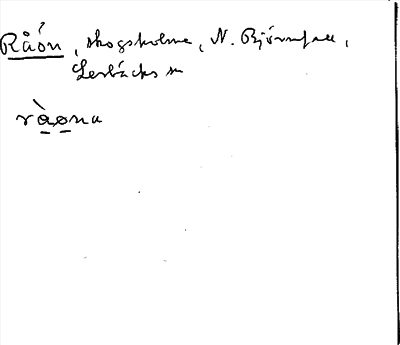 Råön, skogsholme, N. Björnfall,
Lerbäcks sn
ràǫna